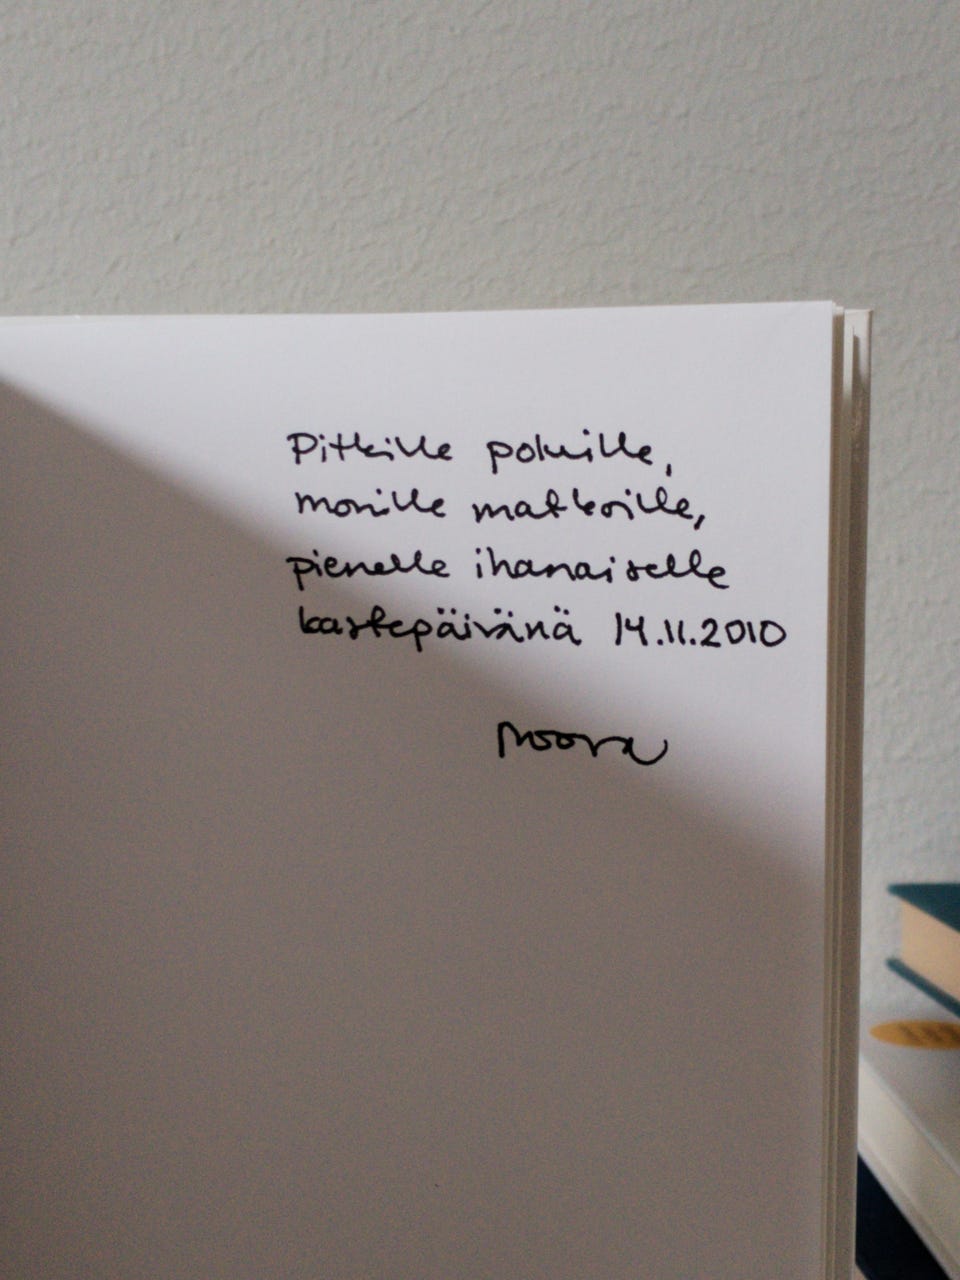 Pitkille poluille,
monille matkoille,
pienelle ihanaiselle
kastepäivänä 14.11.2010
Noora